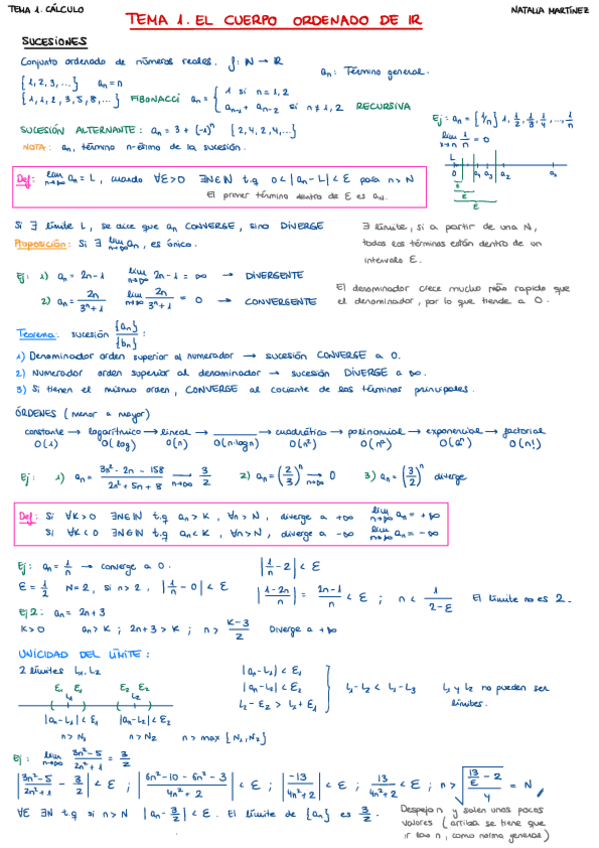 TEMA 1. CÁLCULO
NATALIA MARTÍNEZ
TEMA 1. EL CUERPO ORDENADO DE IR
SUCESIONES
Conjunto ordenado de números reales. f: N → R
an: Término general.
{1, 2, 3, ...} an = n
{1, 1, 2, 3, 5, 8, ...} FIBONACCI an = { 1 si n = 1, 2
an-1 + an-2 si n ≠ 1, 2 RECURSIVA
Ej: an = {1/n} 1, 1/2, 1/3, 1/4, ..., 1/n
lim n→∞ 1/n = 0
SUCESIÓN ALTERNANTE: an = 3 + (-1)^n {2, 4, 2, 4, ...}
NOTA: an, término n-ésimo de la sucesión.
L
0 a4 a3 a2 a1
ε
ε
Def: lim n→∞ an = L, cuando ∀ε>0 ∃N∈IN t.q 0<|an-L|<ε para n>N
El primer término dentro de ε es aN.
Si ∃ límite L, se dice que an CONVERGE, sino DIVERGE
Proposición: Si ∃ lim n→∞ an, es único.
∃ límite, si a partir de una N,
todos los términos están dentro de un
intervalo ε.
Ej: 1) an = 2n-1 lim n→∞ 2n-1 = ∞ → DIVERGENTE
2) an = 2n/(3^n+1) lim n→∞ 2n/(3^n+1) = 0 → CONVERGENTE
El denominador crece mucho más rapido que
el denominador, por lo que tiende a 0.
Teorema: sucesión {an}/{bn} :
1) Denominador orden superior al numerador → sucesión CONVERGE a 0.
2) Numerador orden superior al denominador → sucesión DIVERGE a ∞.
3) Si tienen el mismo orden, CONVERGE al cociente de los términos principales.
ÓRDENES (menor a mayor)
constante → logarítmico → lineal → ______ → cuadrático → polinomial → exponencial → factorial
O(1) O(log) O(n) O(n·logn) O(n²) O(n^c) O(a^n) O(n!)
Ej: 1) an = (3n²-2n-158)/(2n²+5n+8) n→∞ 3/2 2) an = (2/3)^n → 0 3) an = (3/2)^n diverge
Def: Si ∀K>0 ∃N∈IN t.q an>K, ∀n>N, diverge a +∞ lim n→∞ an = +∞
Si ∀K<0 ∃N∈IN t.q an<K, ∀n>N, diverge a -∞ lim n→∞ an = -∞
Ej: an = 1/n → converge a 0. |1/n - 2| < ε
ε = 1/2 N=2, si n>2, |1/n - 0| < ε |(1-2n)/n| = (2n-1)/n < ε ; n < 1/(2-ε) El límite no es 2.
Ej 2: an = 2n+3
K>0 an>K ; 2n+3>K ; n > (K-3)/2 Diverge a +∞
UNICIDAD DEL LÍMITE:
2 límites L1, L2
ε1 ε1 ε2 ε2
L1 L2
|an-L1|<ε1 |an-L2|<ε2
n>N1 n>N2 n>max{N1,N2}
|an-L1|<ε1
|an-L2|<ε2
L2-ε2 > L1+ε1
L1 y L2 no pueden ser
límites.
Ej: lim n→∞ (3n²-5)/(2n²+1) = 3/2
|(3n²-5)/(2n²+1) - 3/2| < ε ; |(6n²-10-6n²-3)/(4n²+2)| < ε ; |-13/(4n²+2)| < ε ; 13/(4n²+2) < ε ; n > √((13/ε - 2)/4) = N
∀ε ∃N t.q si n>N |an - 3/2| < ε. El límite de {an} es 3/2.
Despejo n y salen unos pocos
valores (arriba se tiene que
ir las n, como norma general)